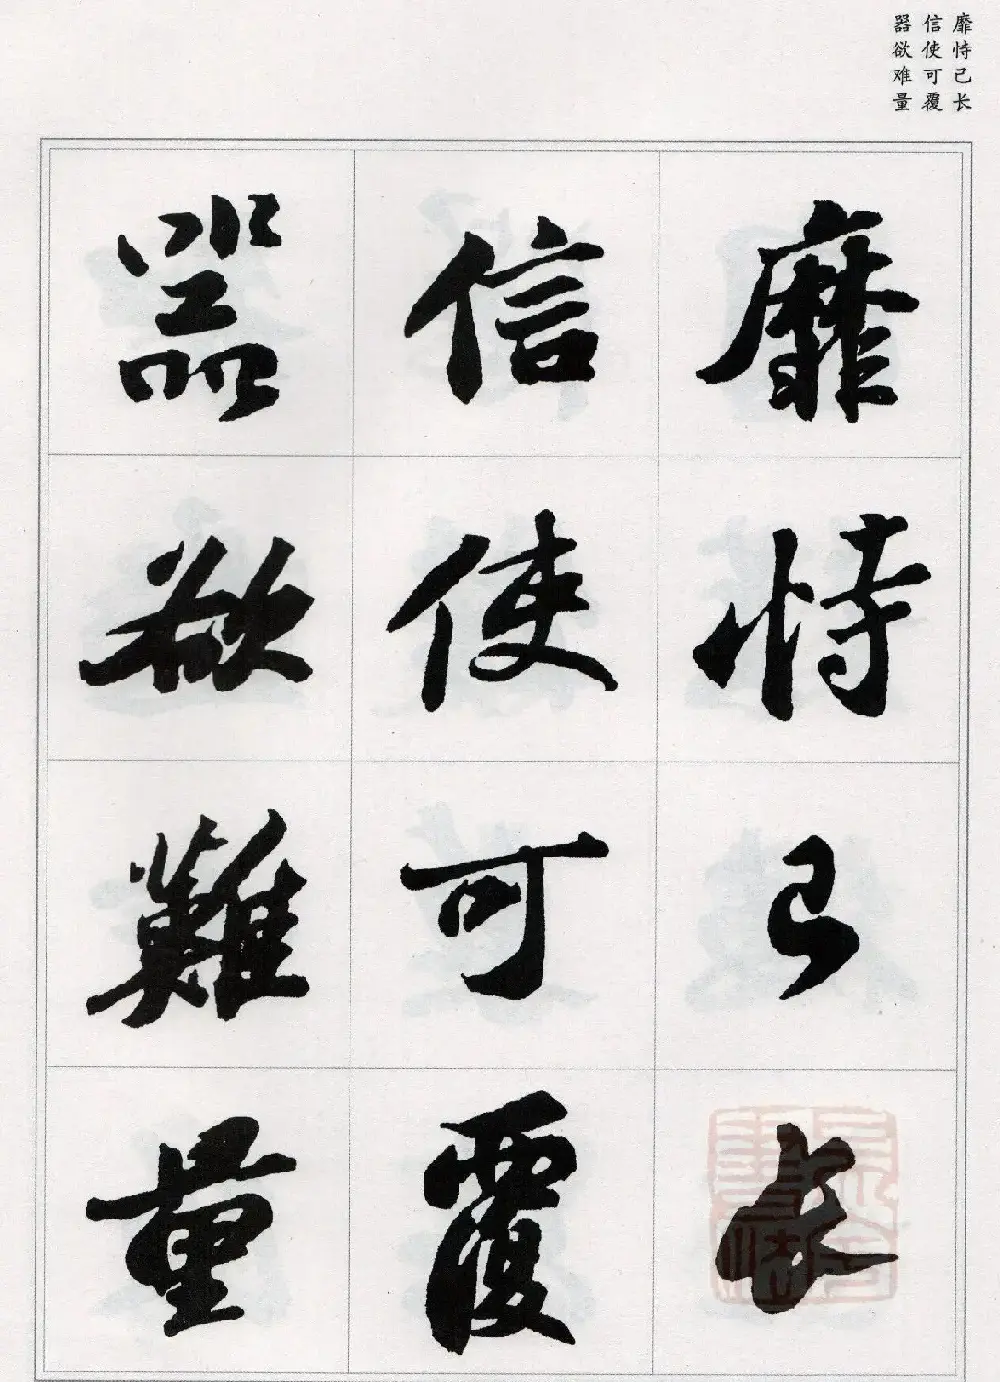 靡恃己长
信使可覆
器欲难量
靡恃已长
信使可覆
器欲難量